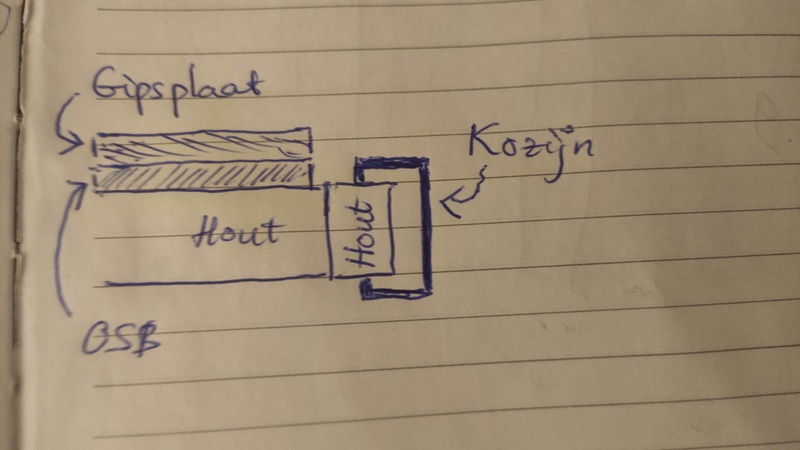 Gipsplaat
Kozijn
Hout
Hout
OSB